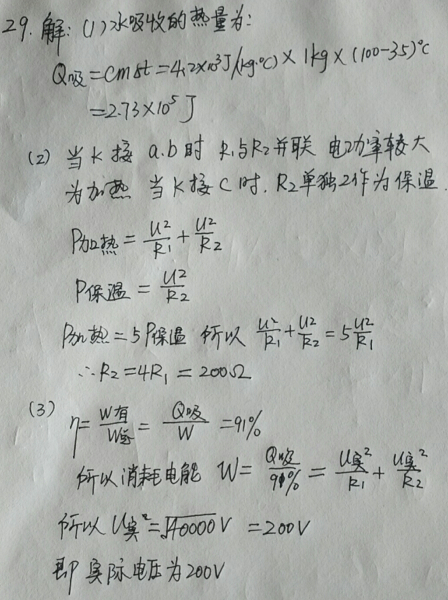 29. 解: (1) 水吸收的热量为:
Q吸 = cmΔt = 4.2×10³J/(kg·℃) × 1kg × (100-35)℃
= 2.73×10⁵ J
(2) 当K接 a.b时 R₁与R₂并联 电功率较大
为加热 当K接C时. R₂单独工作为保温.
P加热 = U²/R₁ + U²/R₂
P保温 = U²/R₂
P加热 = 5P保温 所以 U²/R₁ + U²/R₂ = 5U²/R₁
∴ R₂ = 4R₁ = 200Ω
(3) η = W有/W总 = Q吸/W = 91%
所以消耗电能 W = Q吸/91% = U实²/R₁ + U实²/R₂
所以 U实² = √40000 V = 200V
即实际电压为200V